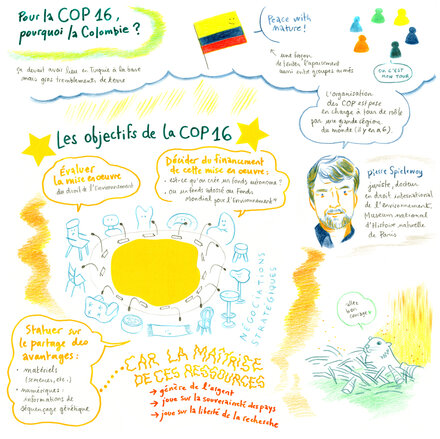 Pour la COP 16,
pourquoi la Colombie ?
ça devait avoir lieu en Turquie à la base
mais gros tremblements de terre
Peace with
nature !
une façon
de tenter l'apaisement
aussi entre groupes armés
OK C'EST
MON TOUR
L'organisation
des COP est prise
en charge à tour de rôle
par une grande région
du monde (il y en a 6)
Les objectifs de la COP 16
Évaluer
la mise en œuvre
du droit de l'Environnement
Décider du financement
de cette mise en œuvre :
• est-ce qu'on crée un fonds autonome ?
• ou un fonds adossé au Fonds
Mondial pour l'Environnement ?
Pierre Spielewoy
juriste, docteur
en droit international
de l'environnement,
Museum national
d'Histoire naturelle
de Paris
NÉGOCIATIONS
STRATÉGIQUES
Statuer sur
le partage des
avantages :
• matériels
(semences, etc.)
• numériques
informations de
séquençage génétique
CAR LA MAÎTRISE
DE CES RESSOURCES
→ génère de l'argent
→ joue sur la souveraineté des pays
→ joue sur la liberté de la recherche
allez
bon
courage